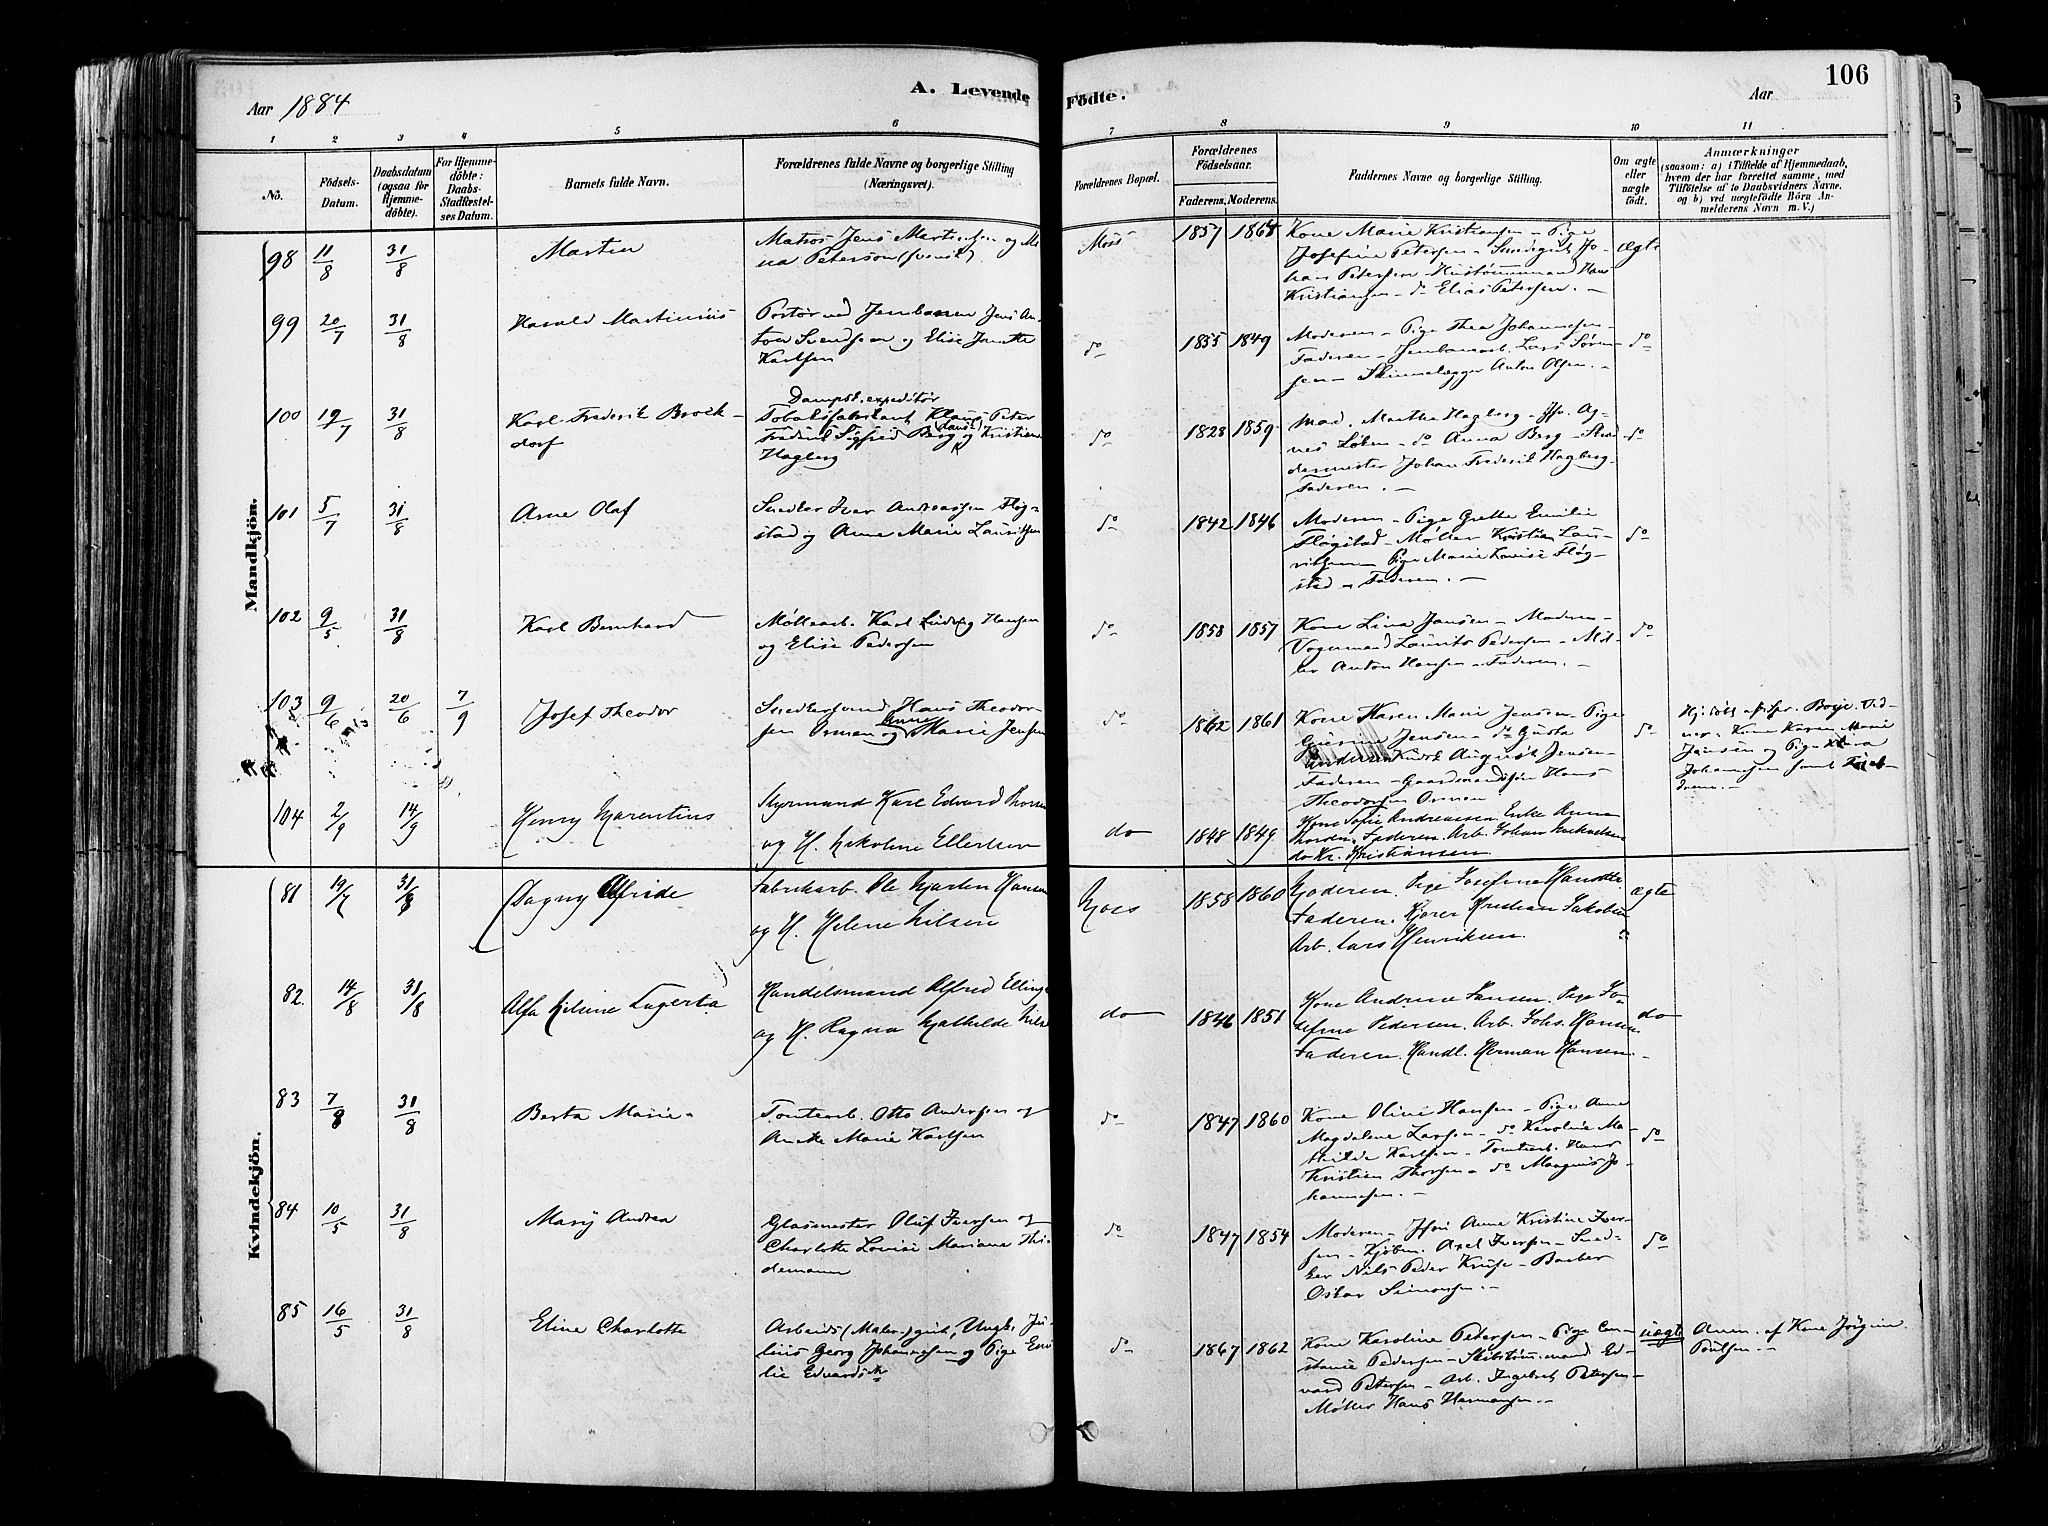 106
A. Levende Födte.
Aar 1884
Aar
1 2 3 4 5 6 7 8 9 10 11
No.
Födsels-Datum.
Daabsdatum (ogsaa for Hjemme-döbte).
For Hjemme-döbte: Daabs-Stadfæstel-ses Datum.
Barnets fulde Navn.
Forældrenes fulde Navne og borgerlige Stilling (Næringsvei).
Forældrenes Bopæl.
Forældrenes Födselsaar.
Faderens. Moderens.
Faddernes Navne og borgerlige Stilling.
Om ægte eller uægte födt.
Anmærkninger
(saasom: a) i Tilfælde af Hjemmedaab,
hvem der har forrettet samme, med
Tilföielse af to Daabsvidners Navne.
og b) ved uægtefödte Börn An-
melderens Navn m. V.)
Mandkjön.
98 11/8 31/8 Martin
Matros Jens Martinsen og Mi-
na Peterson (svensk).
Moss 1857 1864
Kone Marie Kristiansen – Pige
Josefine Petersen – Jo-
han Petersen – Hans
Kristiansen – do Elias Petersen. –
ægte
99 20/7 31/8 Harald Martinius
Portør ved Jernbanen Jens An-
ton Svendsen og Elise Janette
Karlsen
do 1855 1849
Moderen – Pige Thea Johannesen –
Faderen – Jernbanearb. Lars Sören-
sen – Skinnelægger Anton Olsen. –
do
100 19/7 31/8 Karl Frederik Brock-
dorf
Dampsk.expeditör
Tobaksfabrikant Klaus Peter
Fredrik Sigfred Berg (dansk) og Kristiane
Hagberg
do 1828 1859
Mad. Marthe Hagberg – Jfr. Ag-
nes – do Anna Berg –
Johan Frederik Hagberg –
Faderen. –
do
101 5/7 31/8 Arne Olaf
Snedker Iver Andreassen Fløg-
stad og Anne Marie Lauritsen
do 1842 1846
Moderen – Pige Grethe Emilie
Fløgstad – Møller Kristian Lau-
ritsen – Pige Marie Lovise Fløg-
stad – Faderen. –
do
102 9/5 31/8 Karl Bernhard
Møllearb. Karl Ludvig Hansen
og Elise Pedersen
do 1858 1857
Kone Lina Jansen – Moderen –
Vognmand Laurits Pedersen – Møl-
ler Anton Hansen – Faderen. –
do
103 9/6 20/6 7/9 Josef Theodor
Snedkersvend Hans Theodor-
sen Orman og Anne Marie Jensen
do 1862 1861
Kone Karen Marie Jensen – Pige
Jensen – do Gusta
Andersen August Jensen –
Faderen – Gaardmandssøn Hans
Theodorsen Orman
do
Hj. døbt af Borje. Vid-
ner: Kone Karen Marie
Jansen og Pige Klara
Johannesen samt
104 2/9 14/9 Henry Marentius
Styrmand Karl Edvard Thorsen
og H. Nikoline Ellertsen
do 1848 1849
Kone Sofie Andreassen Enke Anna
Thorsen, Faderen. Arb. Johan
do Kr. Kristiansen
Kvindekjön.
81 19/7 31/8 Dagny Alfride
Fabrikarb. Ole Martin Hansen
og H. Helene Nilsen
Moss 1858 1860
Moderen. Pige Josefine
Faderen. Kjører Kristian Jakobsen
Arb. Lars Henriksen.
ægte
82. 14/8 31/8 Alfa Lagerta
Handelsmand Alfred
og H. Ragna Mathilde
do 1846 1851
Kone Andrine Jansen. Pige Jo-
sefine Pedersen. Arb. Johs. Hansen
Faderen. Handl. Herman Hansen. –
do
83 7/8 31/8 Berta Marie –
Tomtearb. Otto Andersen og
Anette Marie Karlsen
do 1847 1860
Kone Oline Hansen – Pige Anne
Magdalene Larsen – do Karoline Ma-
thilde Karlsen – Tomtearb. Hans
Kristian Thorsen – do Magnus Jo-
hannesen. –
do
84 10/5 31/8 Mary Andrea
Glasmester Oluf Iversen og
Charlotte Lovise Mariane Thi-
demann
do 1847 1854
Moderen – Jfr. Anne Kristine Iver-
sen – Kjøbm. Axel Iversen – Sned-
ker Nils Peder Kruse – Barber
Oskar Simonsen. –
do
85 16/5 31/8 Eline Charlotte
Arbeids (Maler-)gut, Ungk. Ju-
lius Georg Johannesen og Pige Emi-
lie Edvards
do 1867 1862
Kone Karoline Petersen – Pige Con-
stance Pedersen – Skibstømmermand Ed-
vard Petersen – Arb. Ingebret Petersen –
Møller Hans Hermansen. –
uægte
Anm. af Kone Jörgine
Poulsen. –